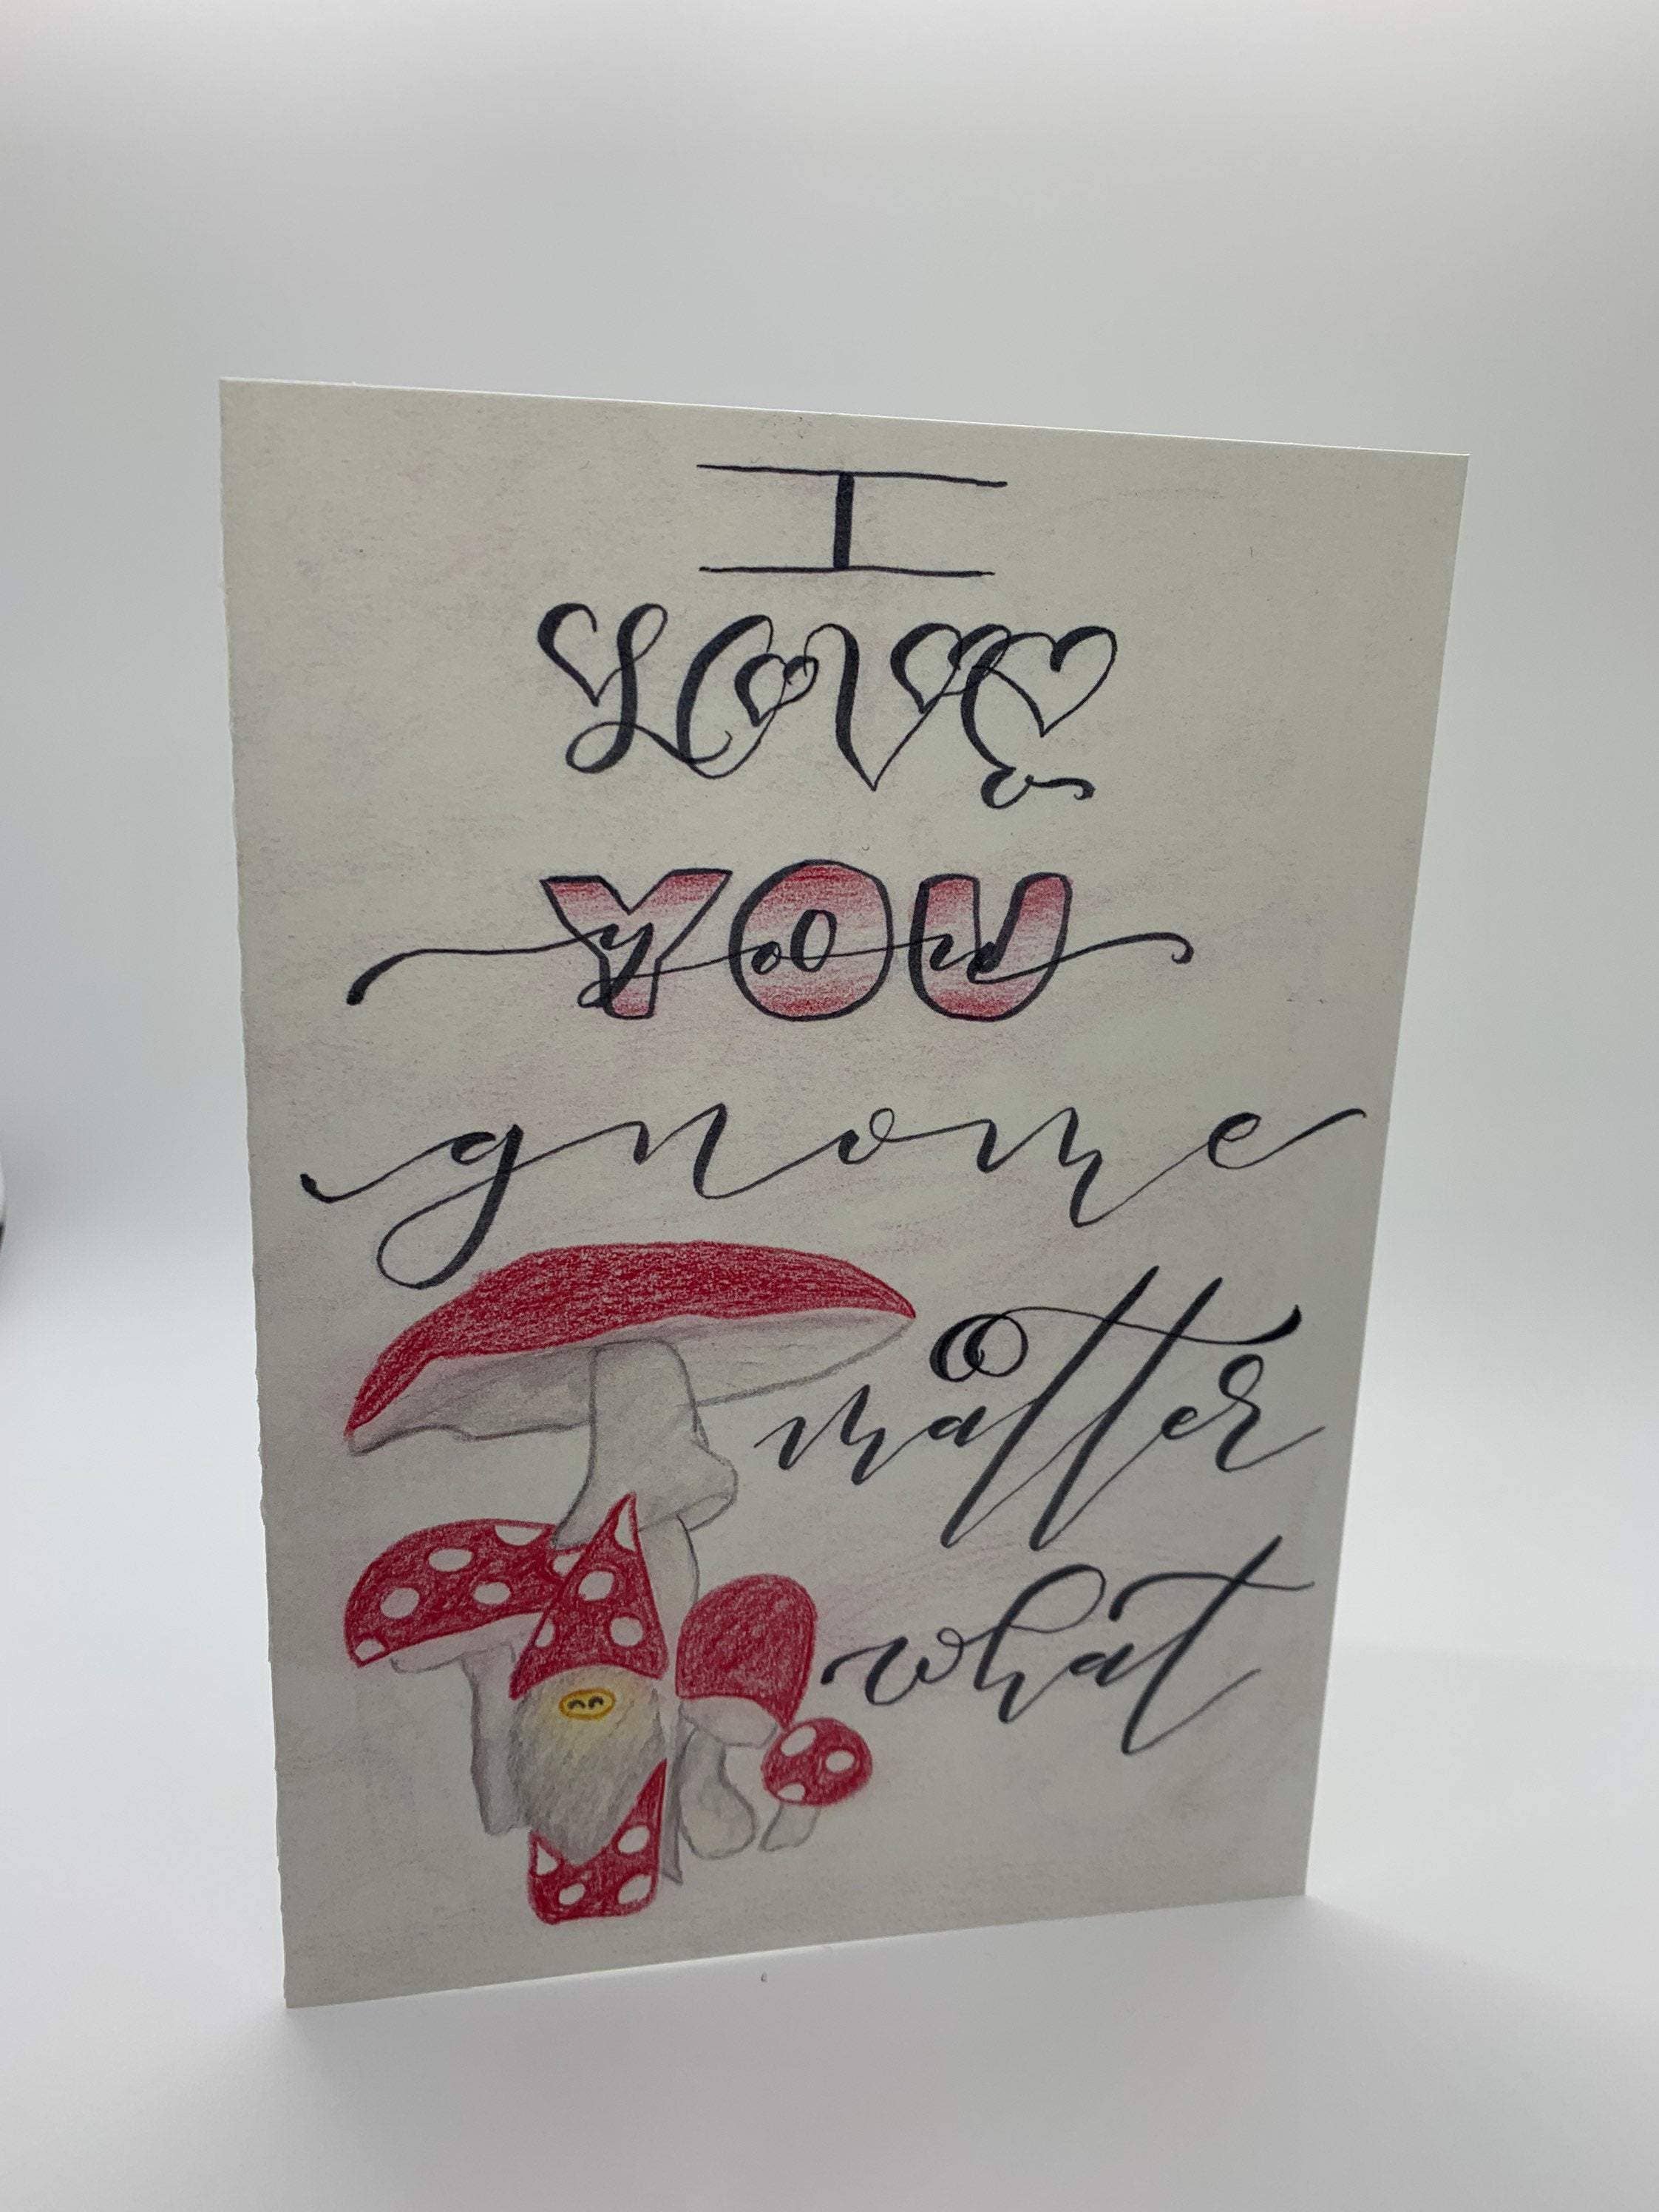 I
LOVE
YOU
you
gnome
matter
what